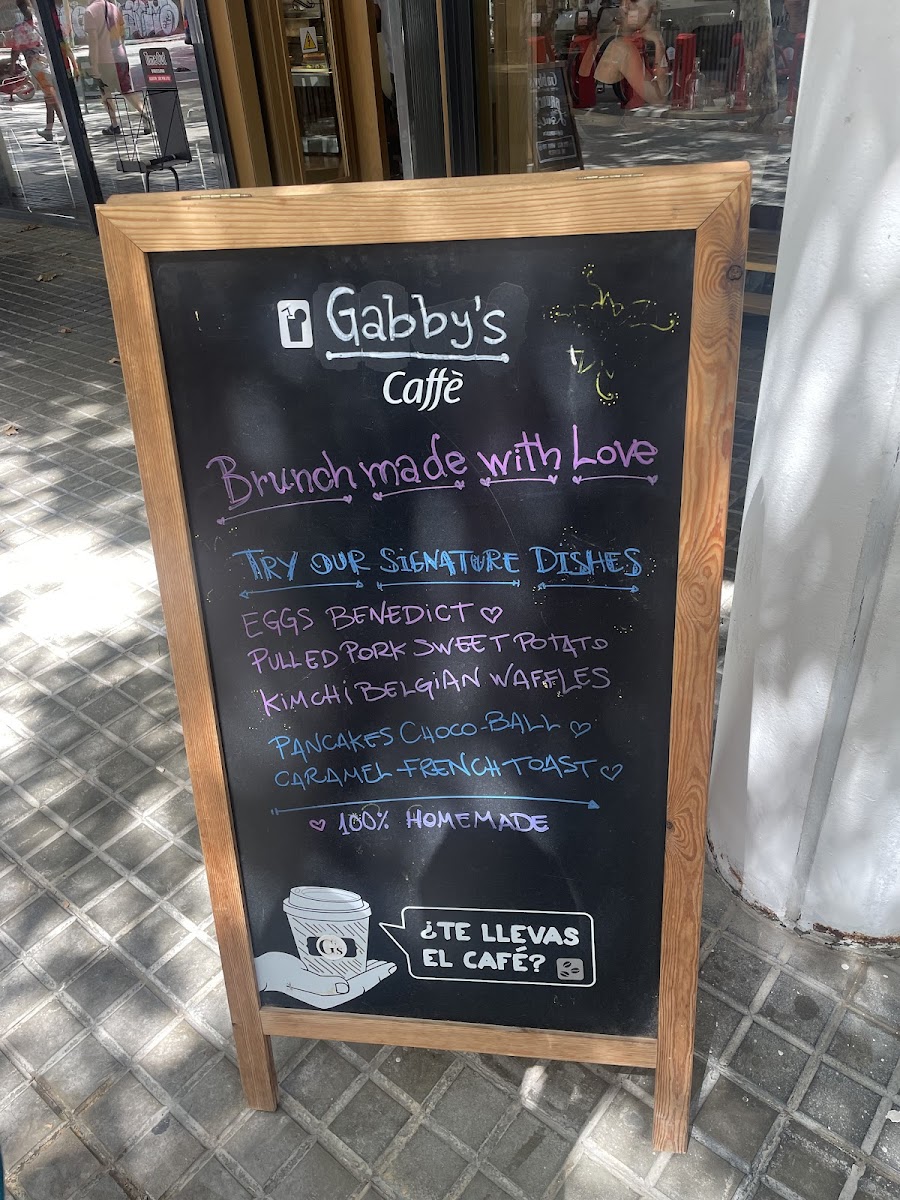 Gabby's
Caffè
Brunch made with Love
TRY OUR SIGNATURE DISHES
EGGS BENEDICT
PULLED PORK SWEET POTATO
KIMCHI BELGIAN WAFFLES
PANCAKES CHOCO-BALL
CARAMEL-FRENCH TOAST
100% HOMEMADE
G's
¿TE LLEVAS
EL CAFÉ?